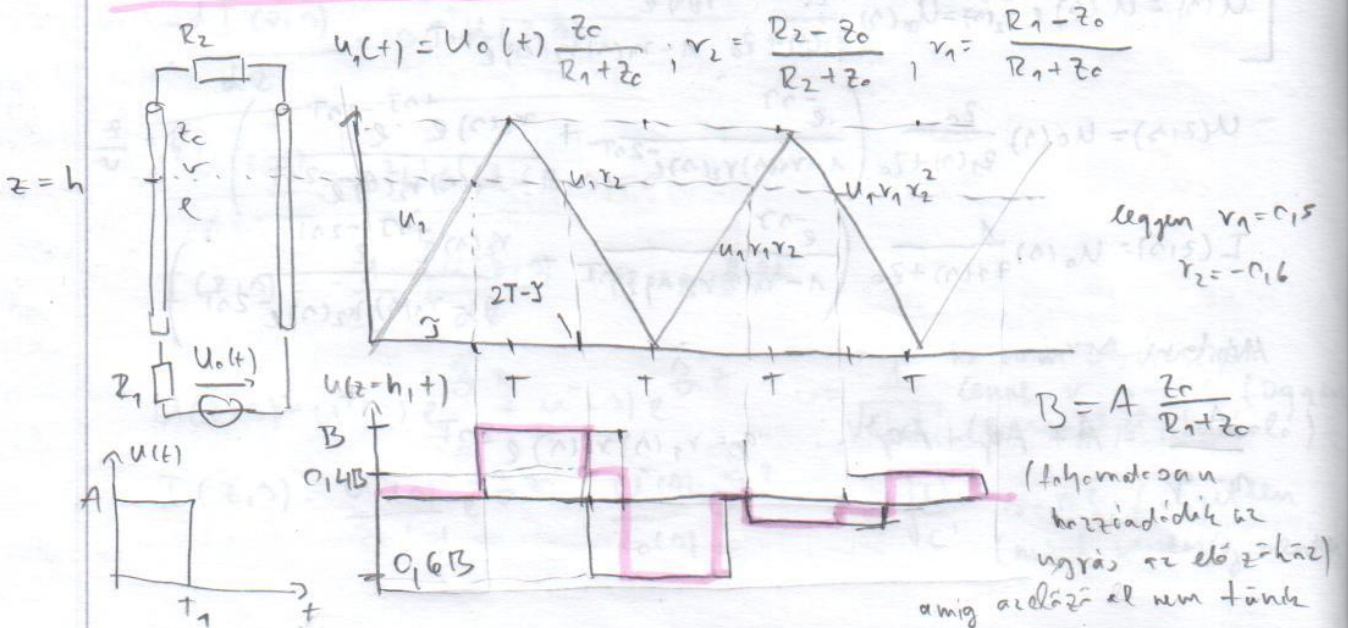 R₂
u₁(t) = U₀(t) Z₀/(R₁+Z₀) ; r₂ = (R₂-Z₀)/(R₂+Z₀) , r₁ = (R₁-Z₀)/(R₁+Z₀)
z = h
Z₀
v
l
u₁
u₁r₂
u₁r₁r₂
u₁r₁r₂²
legyen r₁=0,5
r₂=-0,6
2T-ϑ
ϑ
T T T T
R₁
U₀(t)
u(z=h,t)
B
0,4B
0,6B
B = A Z₀/(R₁+Z₀)
(folyamatosan
hozzáadódik az
ugrás az előzőhöz)
amíg az előző el nem tűnik
U(t)
A
T₁ t